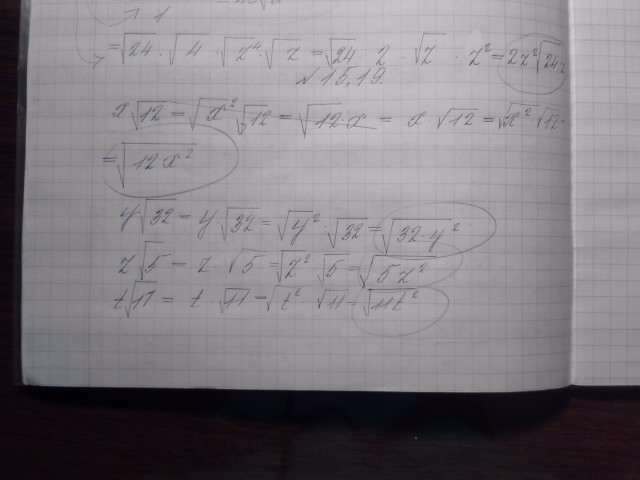 1
= √24 · √4 · √z⁴ · √z = √24 · 2 · √z · z² = 2z²√24z
√ 15,19.
x√12 = √x² √12 = √12·x = x √12 = √x² √12 =
= √12x²
y√32 = y √32 = √y² · √32 = √32·y²
z√5 = z · √5 = √z² √5 = √5z²
t√11 = t · √11 = √t² · √11 = √11t²